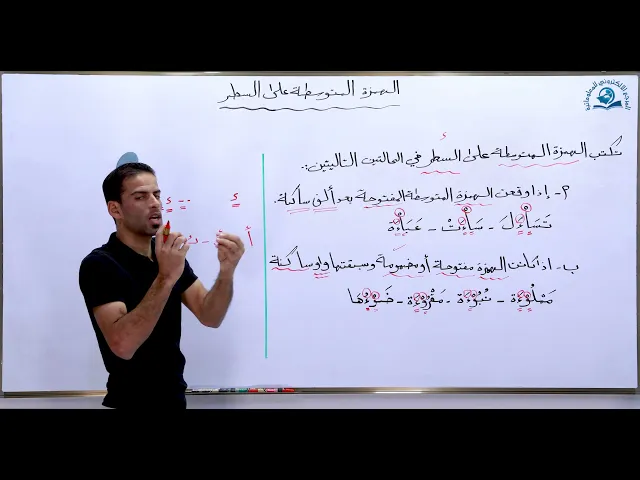 الهمزة المتوسطة على السطر
ء
تكتب الهمزة المتوسطة على السطر في الحالتين التاليتين :.
أ - إذا وقعت الهمزة المتوسطة المفتوحة بعد ألف ساكنة.
تَسَاءَلَ - سَاءَتْ - عَبَاءَة
ب - اذا كانت الهمزة مفتوحة أو مضمومة وسبقتها واو ساكنة
مَمْلُوْءَة - نُبُوْءَة - مَقْرُوْءَة - ضَوْءُهَا
ء - ء
أ